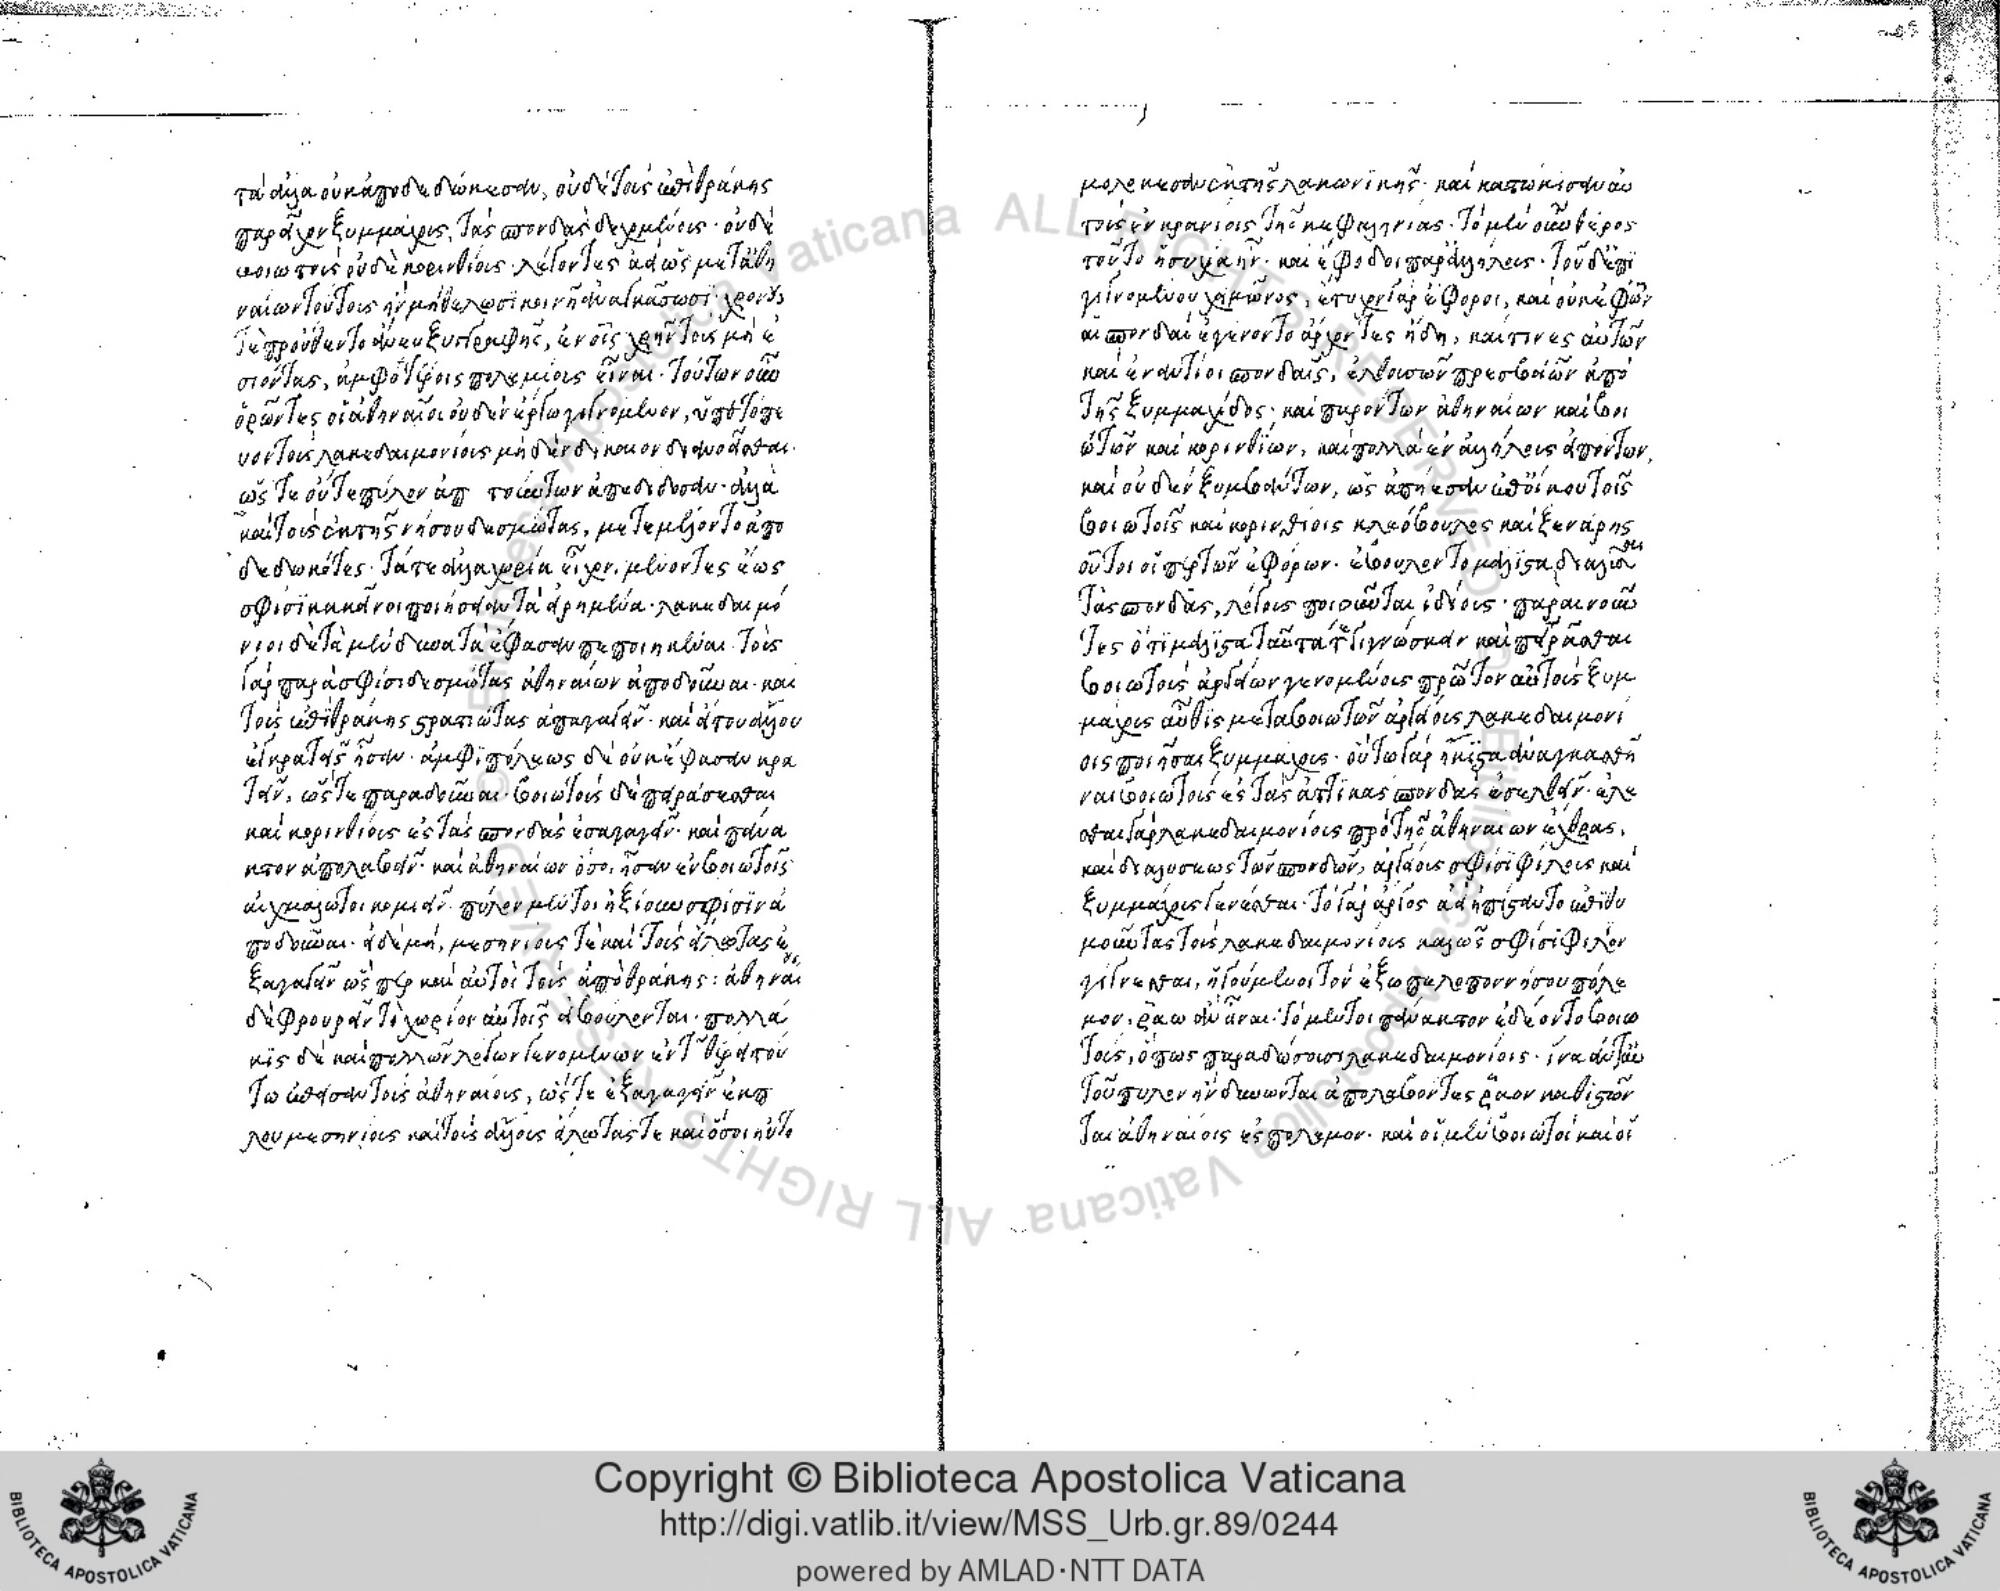 τὰ ἄλλα οὐκ ἀποδεδώκεσαν, οὐδὲ τοὺς ἐπὶ θράκης
παρεῖχον ξυμμάχους, τὰς σπονδὰς δεχομένους· οὐδὲ
βοιωτοὺς οὐδὲ κορινθίους· λέγοντες ἀεὶ ὡς μετ' ἀθη
ναίων τούτους ἢν μὴ θέλωσι κοινῇ ἀναγκάσωσι· χρόνους
τὲ προύθεντο ἄνευ ξυγγραφῆς, ἐν οἷς χρῆν τοὺς μὴ ἐ
σιόντας, ἀμφοτέροις πολεμίους εἶναι· τούτων οὖν
ὁρῶντες οἱ ἀθηναῖοι οὐδὲν ἔργω γιγνόμενον, ὑπετόπε
υον τοὺς λακεδαιμονίους μηδὲν δίκαιον διανοεῖσθαι·
ὥστε οὔτε πύλον ἀπ τούτων ἀπεδίδοσαν· ἀλλὰ
καὶ τοὺς ἐκ τῆς νήσου δεσμώτας, μετεμέλοντο ἀπο
δεδωκότες· τά τε ἄλλα χωρία εἶχον, μένοντες ἕως
σφίσι κἀκεῖνοι ποιήσειαν τὰ εἰρημένα· λακεδαιμό
νιοι δὲ τὰ μὲν δυνατὰ ἔφασαν πεποιηκέναι· τοὺς
γὰρ παρὰ σφίσι δεσμώτας ἀθηναίων ἀποδοῦναι· καὶ
τοὺς ἐπὶ θράκης στρατιώτας ἀπαγαγεῖν· καὶ εἴ του ἄλλου
ἐγκρατεῖς ἦσαν· ἀμφιπόλεως δὲ οὐκ ἔφασαν κρα
τεῖν, ὥστε παραδοῦναι· βοιωτοὺς δὲ πειράσεσθαι
καὶ κορινθίους ἐς τὰς σπονδὰς ἐσαγαγεῖν· καὶ πάνα
κτον ἀπολαβεῖν· καὶ ἀθηναίων ὅσοι ἦσαν ἐν βοιωτοῖς
αἰχμάλωτοι κομιεῖν· πύλον μέντοι ἠξίουν σφίσιν ἀ
ποδοῦναι· εἰ δὲ μὴ, μεσηνίους τὲ καὶ τοὺς εἵλωτας ἐ
ξαγαγεῖν ὥσπερ καὶ αὐτοὶ τοὺς ἀπὸ θράκης: ἀθηναίους
δὲ φρουρεῖν τὸ χωρίον αὐτοὺς εἰ βούλονται· πολλά
κις δὲ καὶ πολλῶν λόγων γενομένων ἐν τῷ θέρει τού
τω ἔπεισαν τοὺς ἀθηναίους, ὥστε ἐξαγαγεῖν ἐκ π
λου μεσηνίους καὶ τοὺς ἄλλους εἵλωτάς τε καὶ ὅσοι ηὐτο
μολήκεσαν ἐκ τῆς λακωνικῆς· καὶ κατώκισαν αὐ
τοὺς ἐν κρανίοις τῆς κεφαληνίας· τὸ μὲν οὖν θέρος
τοῦτο ἡσυχία ἦν· καὶ ἔφοδοι παρ' ἀλλήλους· τοῦ δ' ἐπι
γιγνομένου χειμῶνος, ἔτυχον γὰρ ἔφοροι, καὶ οὐκ ἐφ' ὧν
αἱ σπονδαὶ ἐγένοντο ἄρχοντες ἤδη, καί τινες αὐτῶν
καὶ ἐναντίοι σπονδαῖς, ἐλθουσῶν πρεσβειῶν ἀπὸ
τῆς ξυμμαχίδος· καὶ παρόντων ἀθηναίων καὶ βοι
ωτῶν καὶ κορινθίων, καὶ πολλὰ ἐν ἀλλήλοις εἰπόντων,
καὶ οὐδὲν ξυμβάντων, ὡς ἀπῄεσαν ἐπ' οἴκου τοῖς
βοιωτοῖς καὶ κορινθίοις κλεόβουλος καὶ ξενάρης
οὗτοι οἵπερ τῶν ἐφόρων· ἐβούλοντο μάλιστα διαλῦσαι
τὰς σπονδὰς, λόγους ποιοῦνται ἰδίους· παραινοῦν
τες ὅτι μάλιστα ταῦτά τε γιγνώσκειν καὶ πειρᾶσθαι
βοιωτοὺς ἀργείων γενομένους πρῶτον αὐτοὺς ξυμ
μάχους αὖθις μετὰ βοιωτῶν ἀργείους λακεδαιμονί
οις ποιῆσαι ξυμμάχους· οὕτω γὰρ ἥκιστα ἀναγκασθῆ
ναι βοιωτοὺς ἐς τὰς ἀττικὰς σπονδὰς ἐσελθεῖν· ἑλέ
σθαι γὰρ λακεδαιμονίους πρὸ τῆς ἀθηναίων ἔχθρας,
καὶ διαλύσεως τῶν σπονδῶν, ἀργείους σφίσι φίλους καὶ
ξυμμάχους γενέσθαι· τὸ γὰρ ἄργος ἀεὶ ἠπίσταντο ἐπιθυ
μοῦντας τοὺς λακεδαιμονίους καλῶς σφίσι φίλιον
γίγνεσθαι, ἡγούμενοι τὸν ἔξω πελοποννήσου πόλε
μον, ῥάω ἂν εἶναι· τὸ μέντοι πάνακτον ἐδέοντο βοιω
τοὺς, ὅπως παραδώσουσι λακεδαιμονίοις· ἵνα ἀντ' αὐ
τοῦ πύλον ἢν δύνωνται ἀπολαβόντες ῥᾷον καθιστῶν
ται ἀθηναίοις ἐς πόλεμον· καὶ οἱ μὲν βοιωτοὶ καὶ οἱ
Copyright © Biblioteca Apostolica Vaticana
http://digi.vatlib.it/view/MSS_Urb.gr.89/0244
powered by AMLAD·NTT DATA
BIBLIOTECA APOSTOLICA VATICANA
BIBLIOTECA APOSTOLICA VATICANA